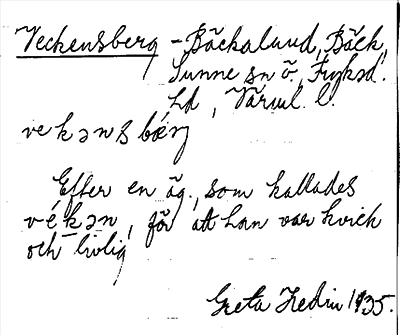 Veckensberg – Bäckalund, Bäck,
Sunne sn ö., Fryksd.
hd, Värml. l.
vekənsbærj
Efter en äg., som kallades
vékən, för att han var kvick
och livlig
Greta Hedin 1935.